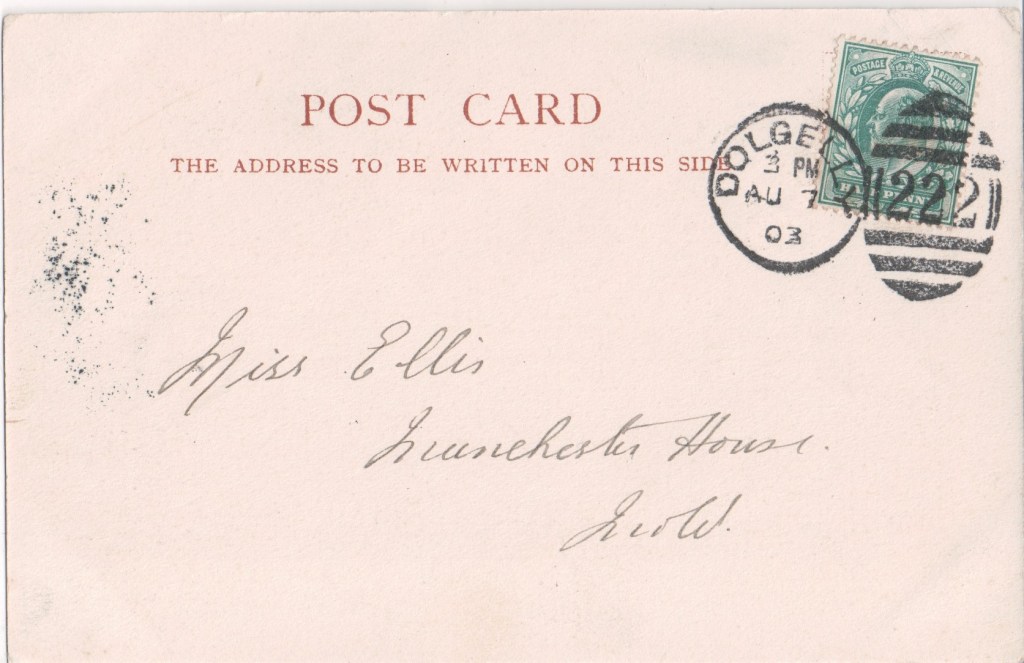 POST CARD
THE ADDRESS TO BE WRITTEN ON THIS SIDE
POSTAGE & REVENUE
HALF PENNY
DOLGELLEY
3 PM
AU 7
03
222
Miss Ellis
Manchester House.
Mold.